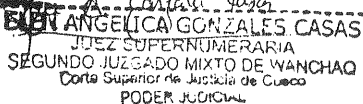 ELEN ANGELICA GONZALES CASAS
JUEZ SUPERNUMERARIA
SEGUNDO JUZGADO MIXTO DE WANCHAQ
Corte Superior de Justicia de Cusco
PODER JUDICIAL